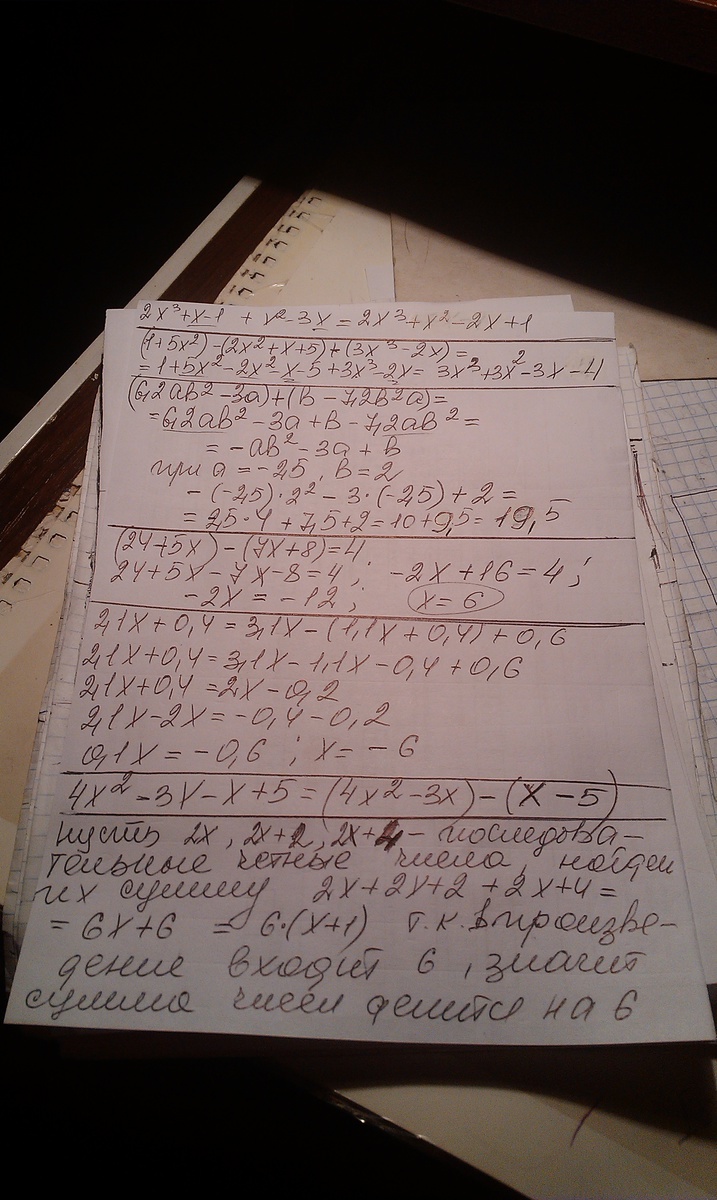 2x³+x-1 + x²-3x = 2x³+x²-2x+1
(1+5x²)-(2x²+x+5)+(3x³-2x)=
=1+5x²-2x²-x-5+3x³-2x= 3x³+3x²-3x-4
(6,2ab²-3a)+(b-7,2b²a)=
=6,2ab²-3a+b-7,2ab²=
=-ab²-3a+b
при a=-2,5, b=2
-(-2,5)·2²-3·(-2,5)+2=
=2,5·4+7,5+2=10+9,5=19,5
(24+5x)-(7x+8)=4;
24+5x-7x-8=4; -2x+16=4;
-2x=-12; x=6
2,1x+0,4=3,1x-(1,1x+0,4)+0,6
2,1x+0,4=3,1x-1,1x-0,4+0,6
2,1x+0,4=2x-0,2
2,1x-2x=-0,4-0,2
0,1x=-0,6; x=-6
4x²-3x-x+5=(4x²-3x)-(x-5)
пусть 2x, 2x+2, 2x+4 - последова-
тельные четные числа, найдем
их сумму 2x+2x+2+2x+4=
=6x+6 = 6·(x+1) т.к. в произве-
дение входит 6, значит
сумма чисел делится на 6